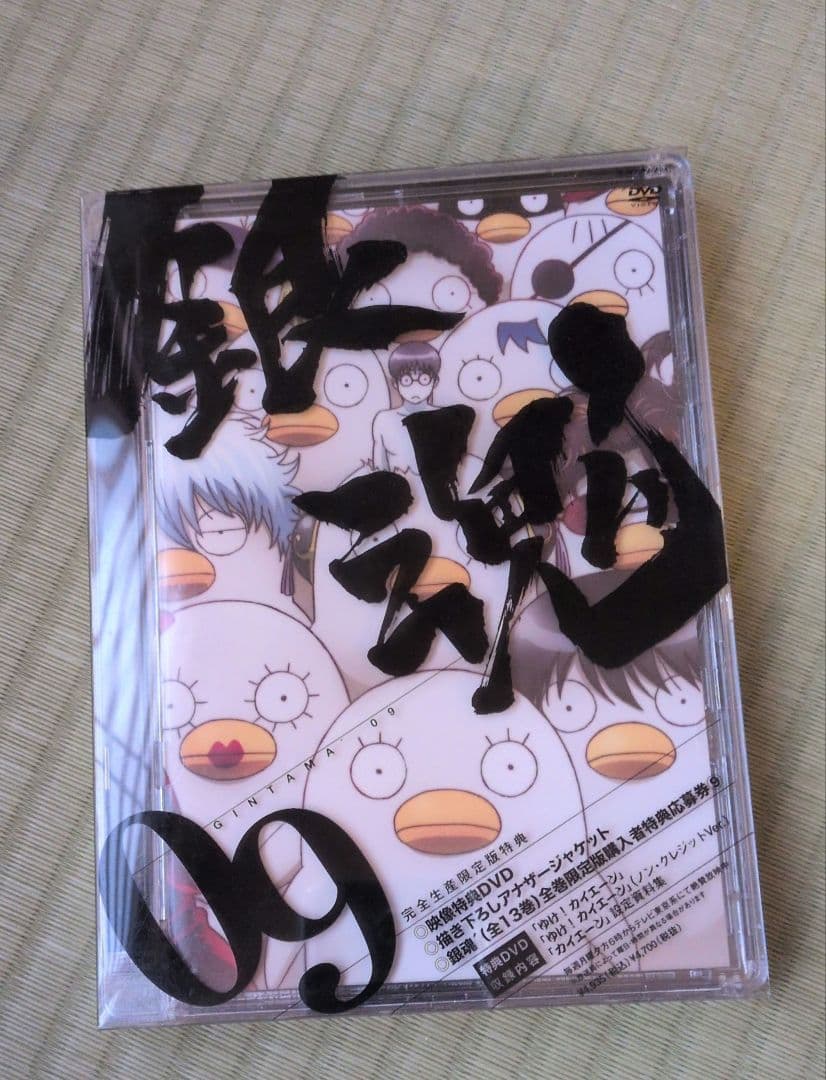 DVD
VIDEO
銀
魂
GINTAMA 09
09
完全生産限定版特典
◎映像特典DVD
◎描き下ろしアナザージャケット
◎銀魂'(全13巻)全巻限定版購入者特典応募券9
特典DVD
収録内容
「ゆけ!カイエーン」
「ゆけ!カイエーン」(ノン・クレジットVer.)
「カイエーン」設定資料集
毎週月曜夕方6時からテレビ東京系にて絶賛放映中
¥4,935(税込)¥4,700(税抜)